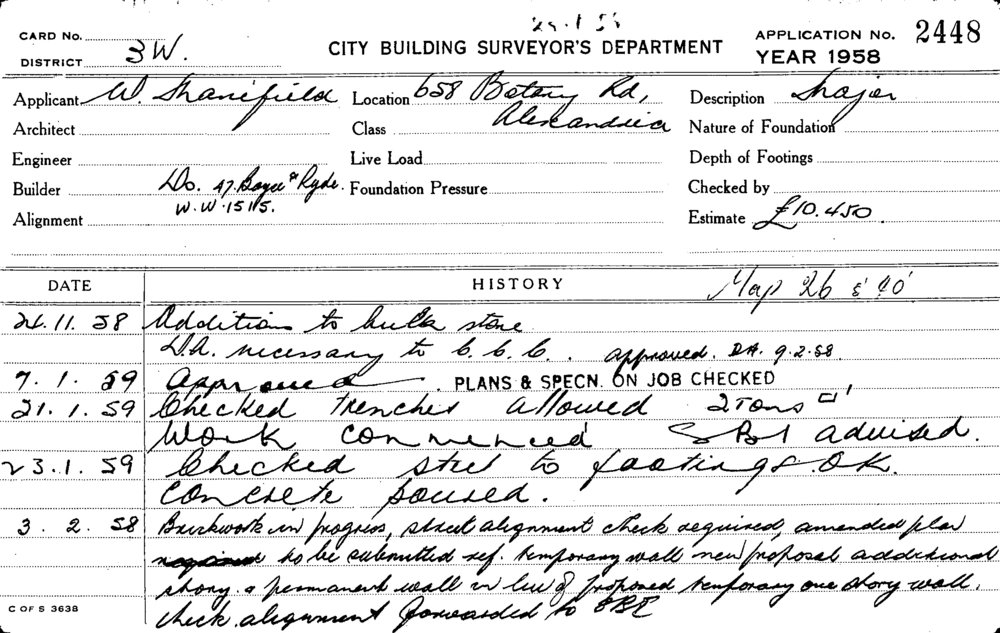 CARD No.
DISTRICT 3 W.
CITY BUILDING SURVEYOR'S DEPARTMENT
APPLICATION No. 2448
YEAR 1958
Applicant W. Shanefield Location 658 Botany Rd, Description Major
Architect Class Alexandria Nature of Foundation
Engineer Live Load Depth of Footings
Builder Do. 47 Boyce St Ryde. Foundation Pressure Checked by
Alignment W.W. 1515. Estimate £10.450.
DATE HISTORY Map 26 & 40'
24.11.58 Additions to bulk store
D.A. necessary to C.C.C. approved. DA. 9.2.58.
7.1.59 Approved PLANS & SPECN. ON JOB CHECKED
21.1.59 Checked trenches allowed 2 Tons □'
Work commenced advised.
23.1.59 Checked steel to footings O.K.
concrete poured.
3.2.58 Brickwork in progress, street alignment check required, amended plan
to be submitted ref. temporary wall new proposal additional
story & permanent wall in lieu of proposed temporary one story wall.
check alignment forwarded to
C OF S 3638